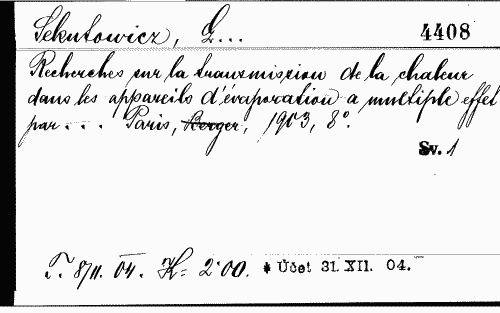 Sekutowicz, L... 4408
Recherches sur la transmission de la chaleur
dans les appareils d'évaporation a multiple effet
par ... Paris, Berger, 1903, 8°.
Sv. 1
T. 8/II. 04. K= 2·00. * Účet 31. XII. 04.